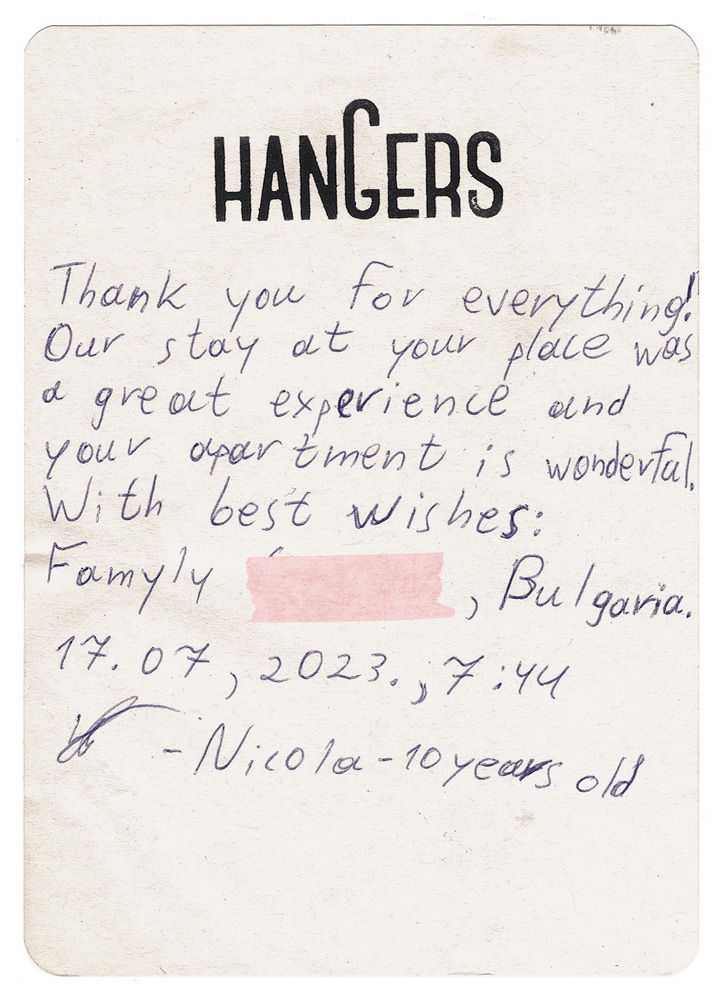 HANGERS
Thank you for everything!
Our stay at your place was
a great experience and
your apartment is wonderful.
With best wishes:
Famyly , Bulgaria.
17.07, 2023., 7:44
- Nicola - 10 years old